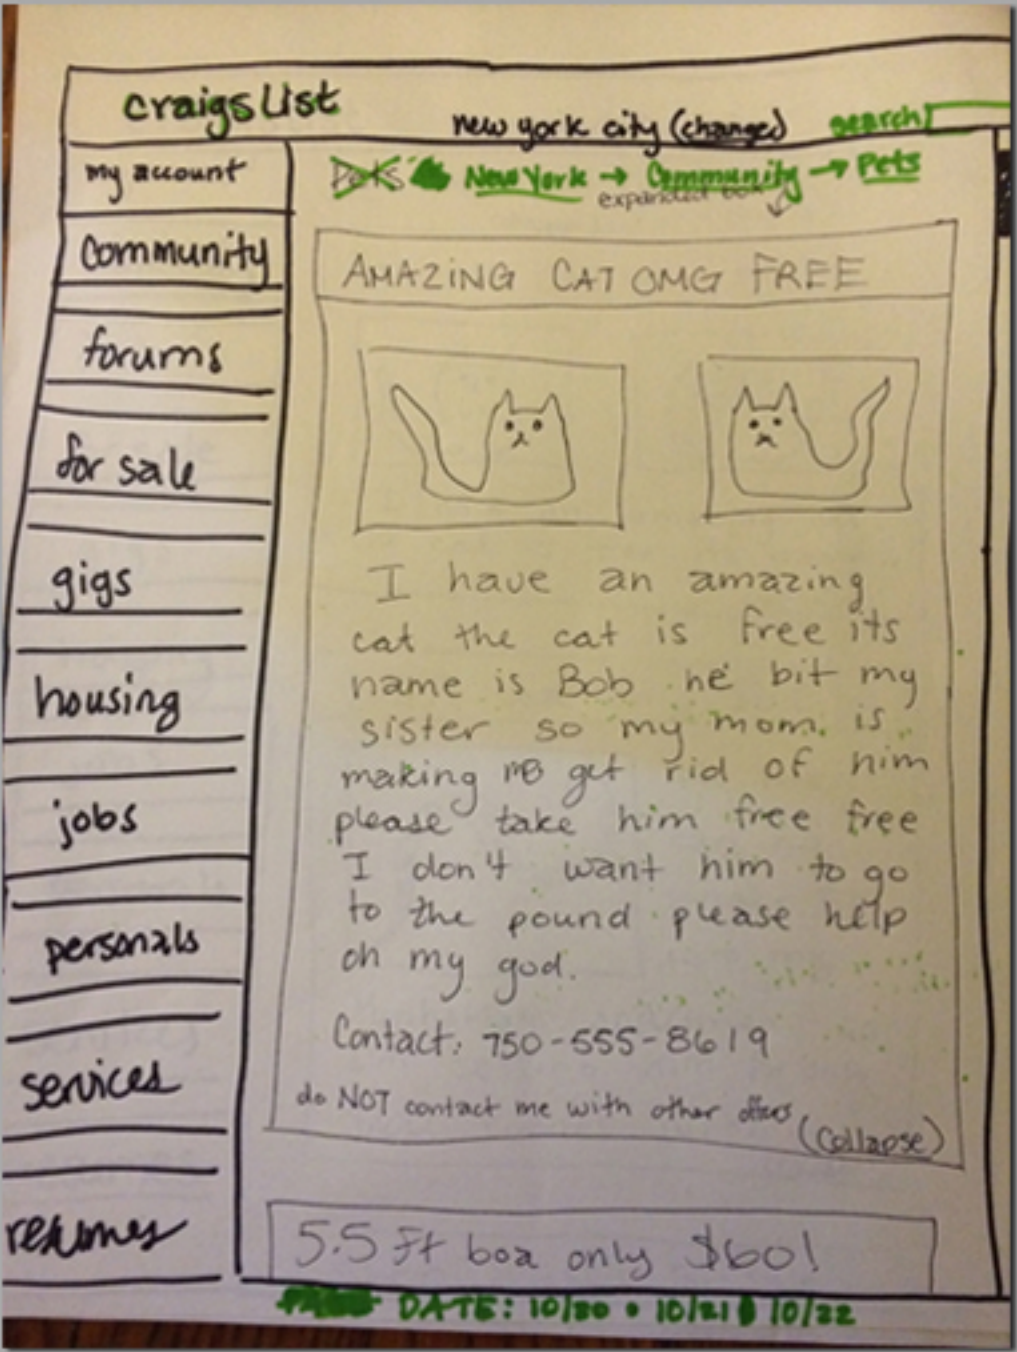 craigslist
new york city (change)
search
my account
Pets New York → Community → Pets
expanded box
community
forums
for sale
gigs
housing
jobs
personals
services
resumes
AMAZING CAT OMG FREE
I have an amazing
cat the cat is free its
name is Bob he bit my
sister so my mom is
making me get rid of him
please take him free free
I don't want him to go
to the pound please help
oh my god.
Contact: 750-555-8619
do NOT contact me with other offers
(collapse)
5.5 Ft boa only $60!
DATE: 10/20 • 10/21 10/22